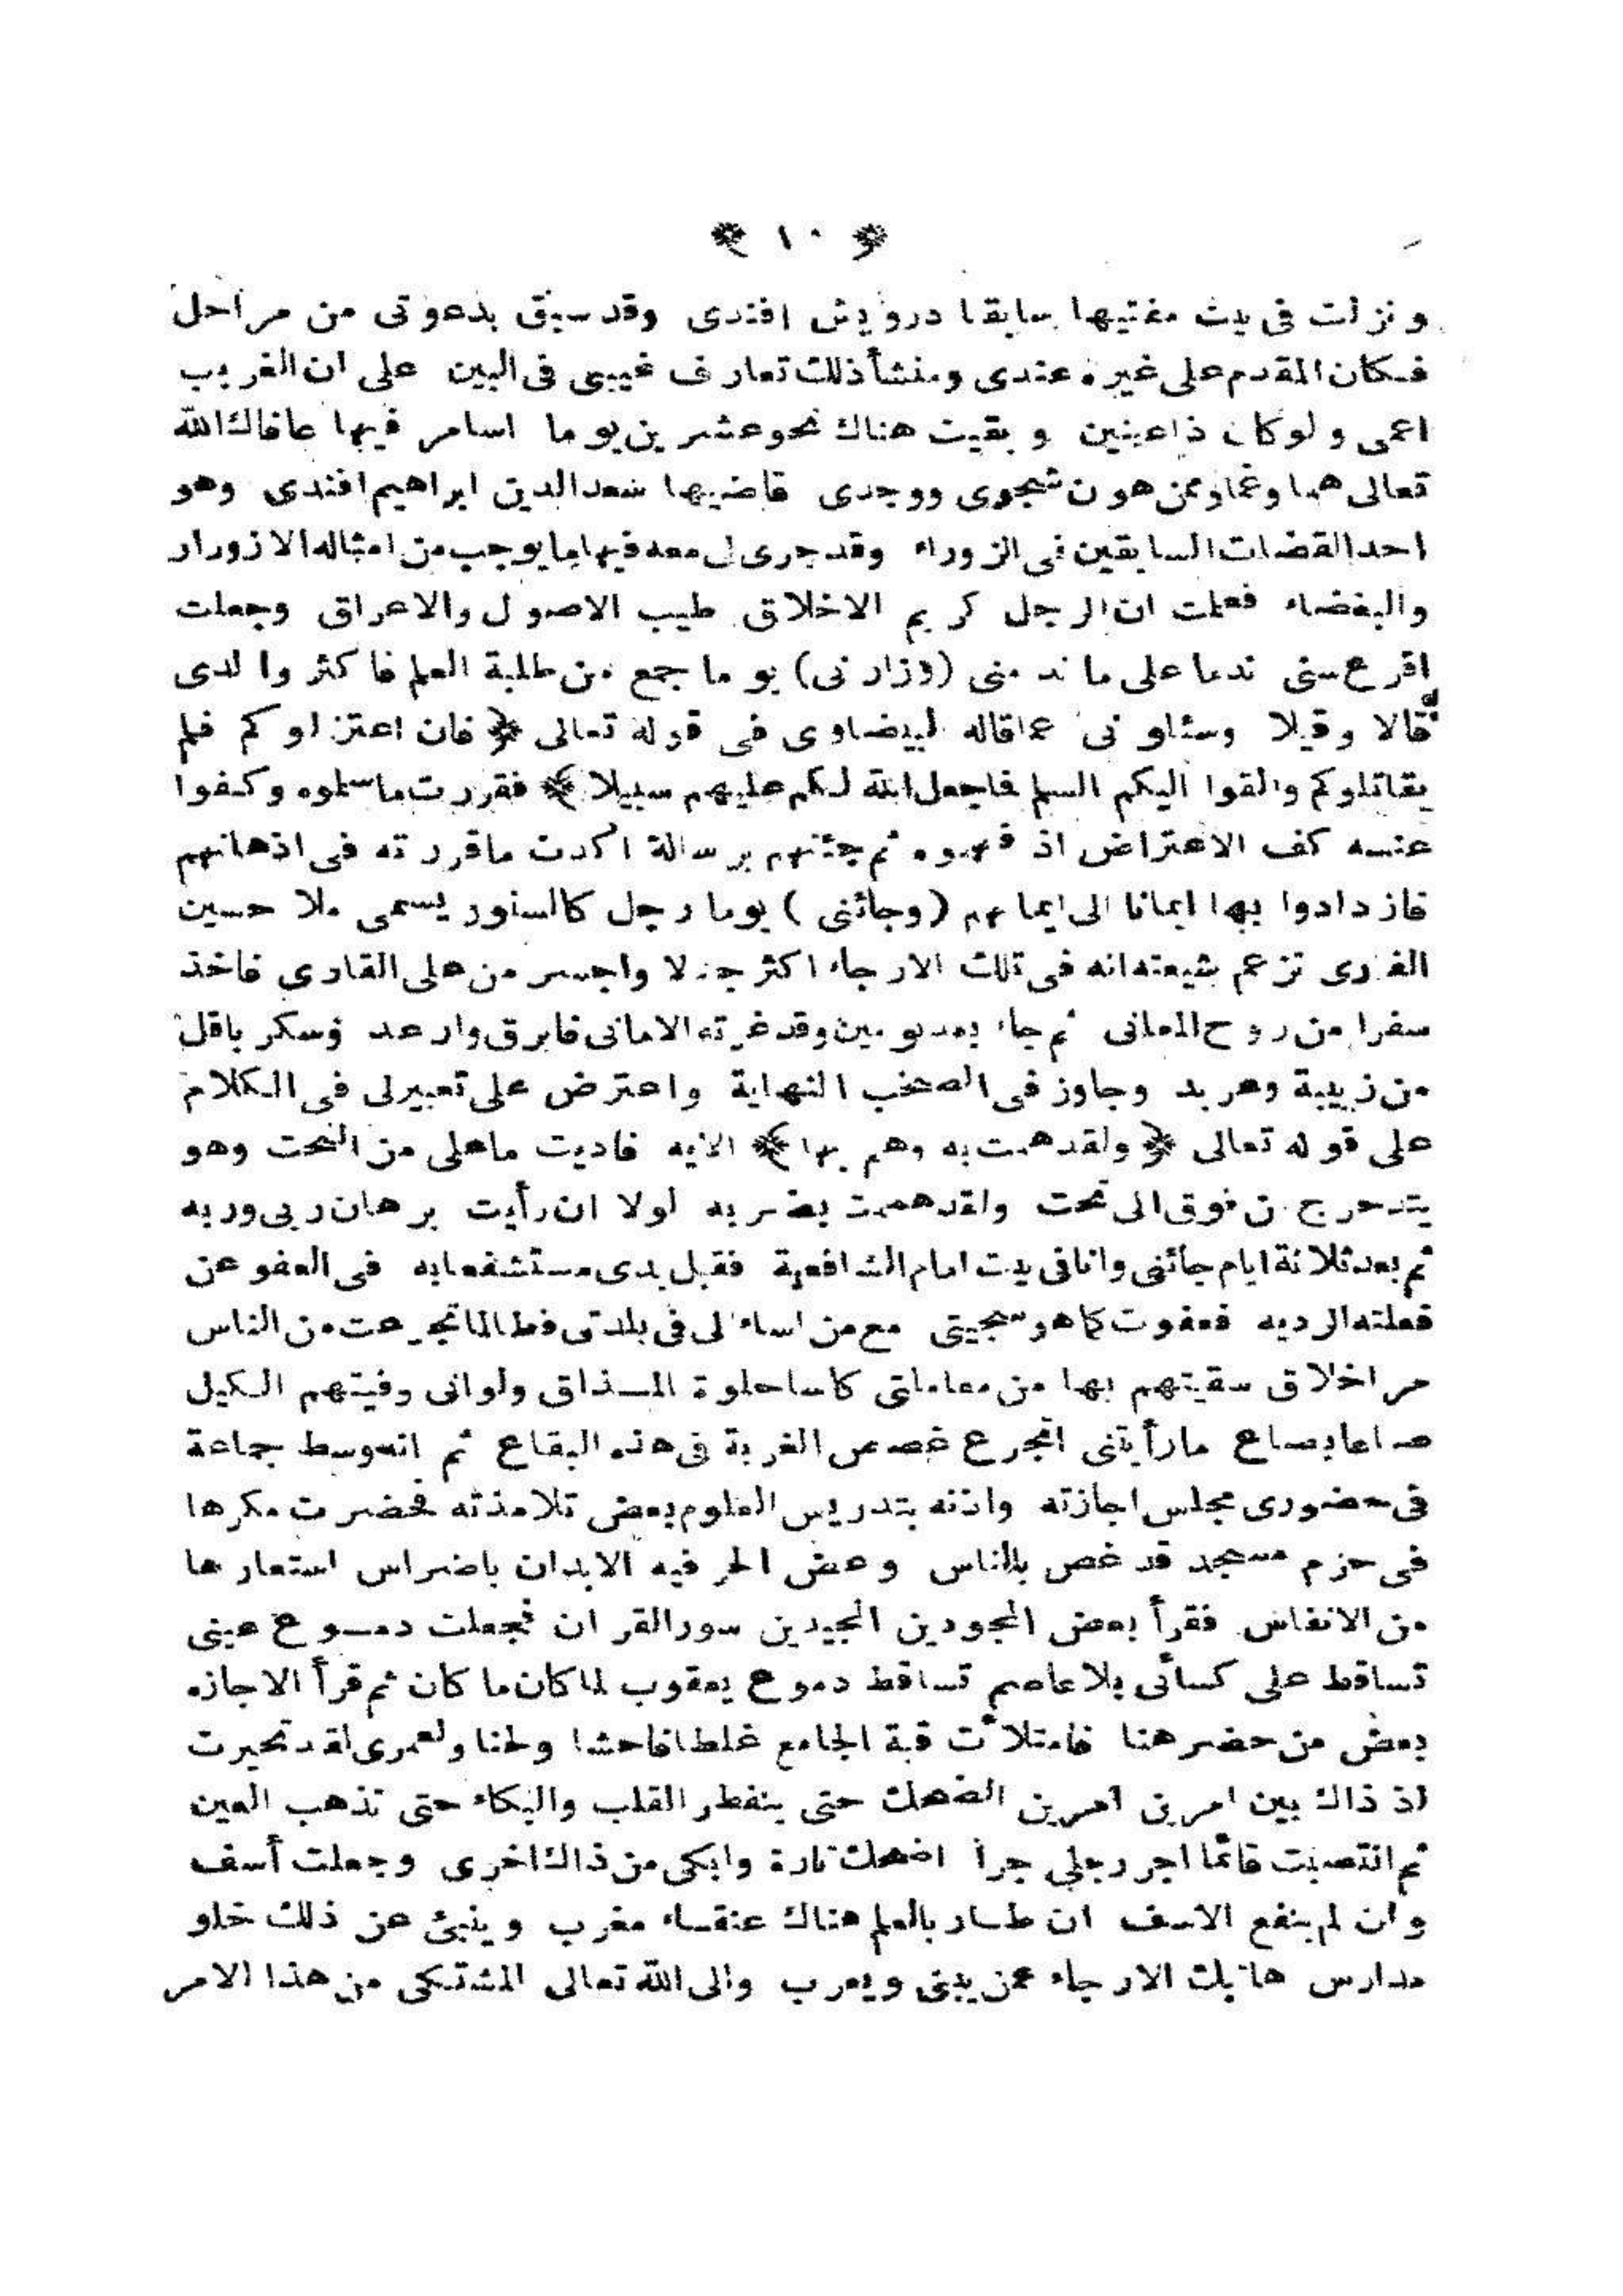 ﴿ ١٠ ﴾
ونزلت فى بيت مفتيها سابقا درويش افندى وقد سبق بدعوتى من مراحل
فكان المقدم على غيره عندى ومنشأ ذلك تعارف غيبى فى البين على ان الغريب
اعمى ولوكان ذا عينين وبقيت هناك نحو عشرين يوما اسامر فيها عافاك الله
تعالى هما وغما وممن هون شجوى ووجدى قاضيها سعد الدين ابراهيم افندى وهو
احد القضات السابقين فى الزوراء وقد جرى لى معه فيها ما يوجب من امثاله الازورار
والبغضاء فعلمت ان الرجل كريم الاخلاق طيب الاصول والاعراق وجعلت
اقرع سنى ندما على ما ند منى (وزارنى) يوما جمع من طلبة العلم فاكثروا لدى
قالا وقيلا وسئلونى عما قاله البيضاوى فى قوله تعالى ﴿ فان اعتزلوكم فلم
يقاتلوكم والقوا اليكم السلم فما جعل الله لكم عليهم سبيلا ﴾ فقررت ما سلموه وكفوا
عنه كف الاعتراض اذ فهموه ثم جئتهم برسالة اكدت ما قررته فى اذهانهم
فازدادوا بها ايمانا الى ايمانهم (وجائنى) يوما رجل كالسنور يسمى ملا حسين
الغدرى تزعم شيعته انه فى تلك الارجاء اكثر جدلا واجسر من على القارى فاخذ
سفرا من روح المعانى ثم جاء بعد يومين وقد غرته الامانى فابرق وارعد وسكر باقل
من زبيبة وعربد وجاوز فى الصخب النهاية واعترض على تعبيرلى فى الكلام
على قوله تعالى ﴿ ولقد همت به وهم بها ﴾ الآيه فاديت ما على من النحت وهو
يتدحرج من فوق الى تحت ولقد هممت بضربه لولا ان رأيت برهان ربى وربه
ثم بعد ثلاثة ايام جائنى وانا فى بيت امام الشافعية فقبل يدى مستشفعا به فى العفو عن
فعلته الرديه فعفوت كما هو سجيتى مع من اساء لى فى بلدتى فطالما تجرعت من الناس
مر اخلاق سقيتهم بها من معاملتى كاسا حلوة المذاق ولوانى وفيتهم الكيل
صاعا بصاع ما رأيتنى اتجرع غصص الغربة فى هذه البقاع ثم انه وسط جماعة
فى حضورى مجلس اجازته واذنه بتدريس العلوم بعض تلامذته فحضرت مكرها
فى حزم مسجد قد غص بالناس وعض الحر فيه الابدان باضراس استعارها
من الانفاس فقرأ بعض المجودين المجيدين سور القران فجعلت دموع عينى
تساقط على كسائى بلا عاصم تساقط دموع يعقوب لما كان ما كان ثم قرأ الاجازه
بعض من حضر هنا فامتلأت قبة الجامع غلطا فاحشا ولحنا ولعمرى لقد تحيرت
اذ ذاك بين امرين امرين الضحك حتى ينفطر القلب والبكاء حتى تذهب العين
ثم انتصبت قائما اجر رجلى جرا اضحك تارة وابكى من ذاك اخرى وجعلت أسف
وان لم ينفع الاسف ان طار بالعلم هناك عنقاء مغرب وينبئ عن ذلك خلو
مدارس هاتيك الارجاء عمن يبنى ويعرب والى الله تعالى المشتكى من هذا الامر